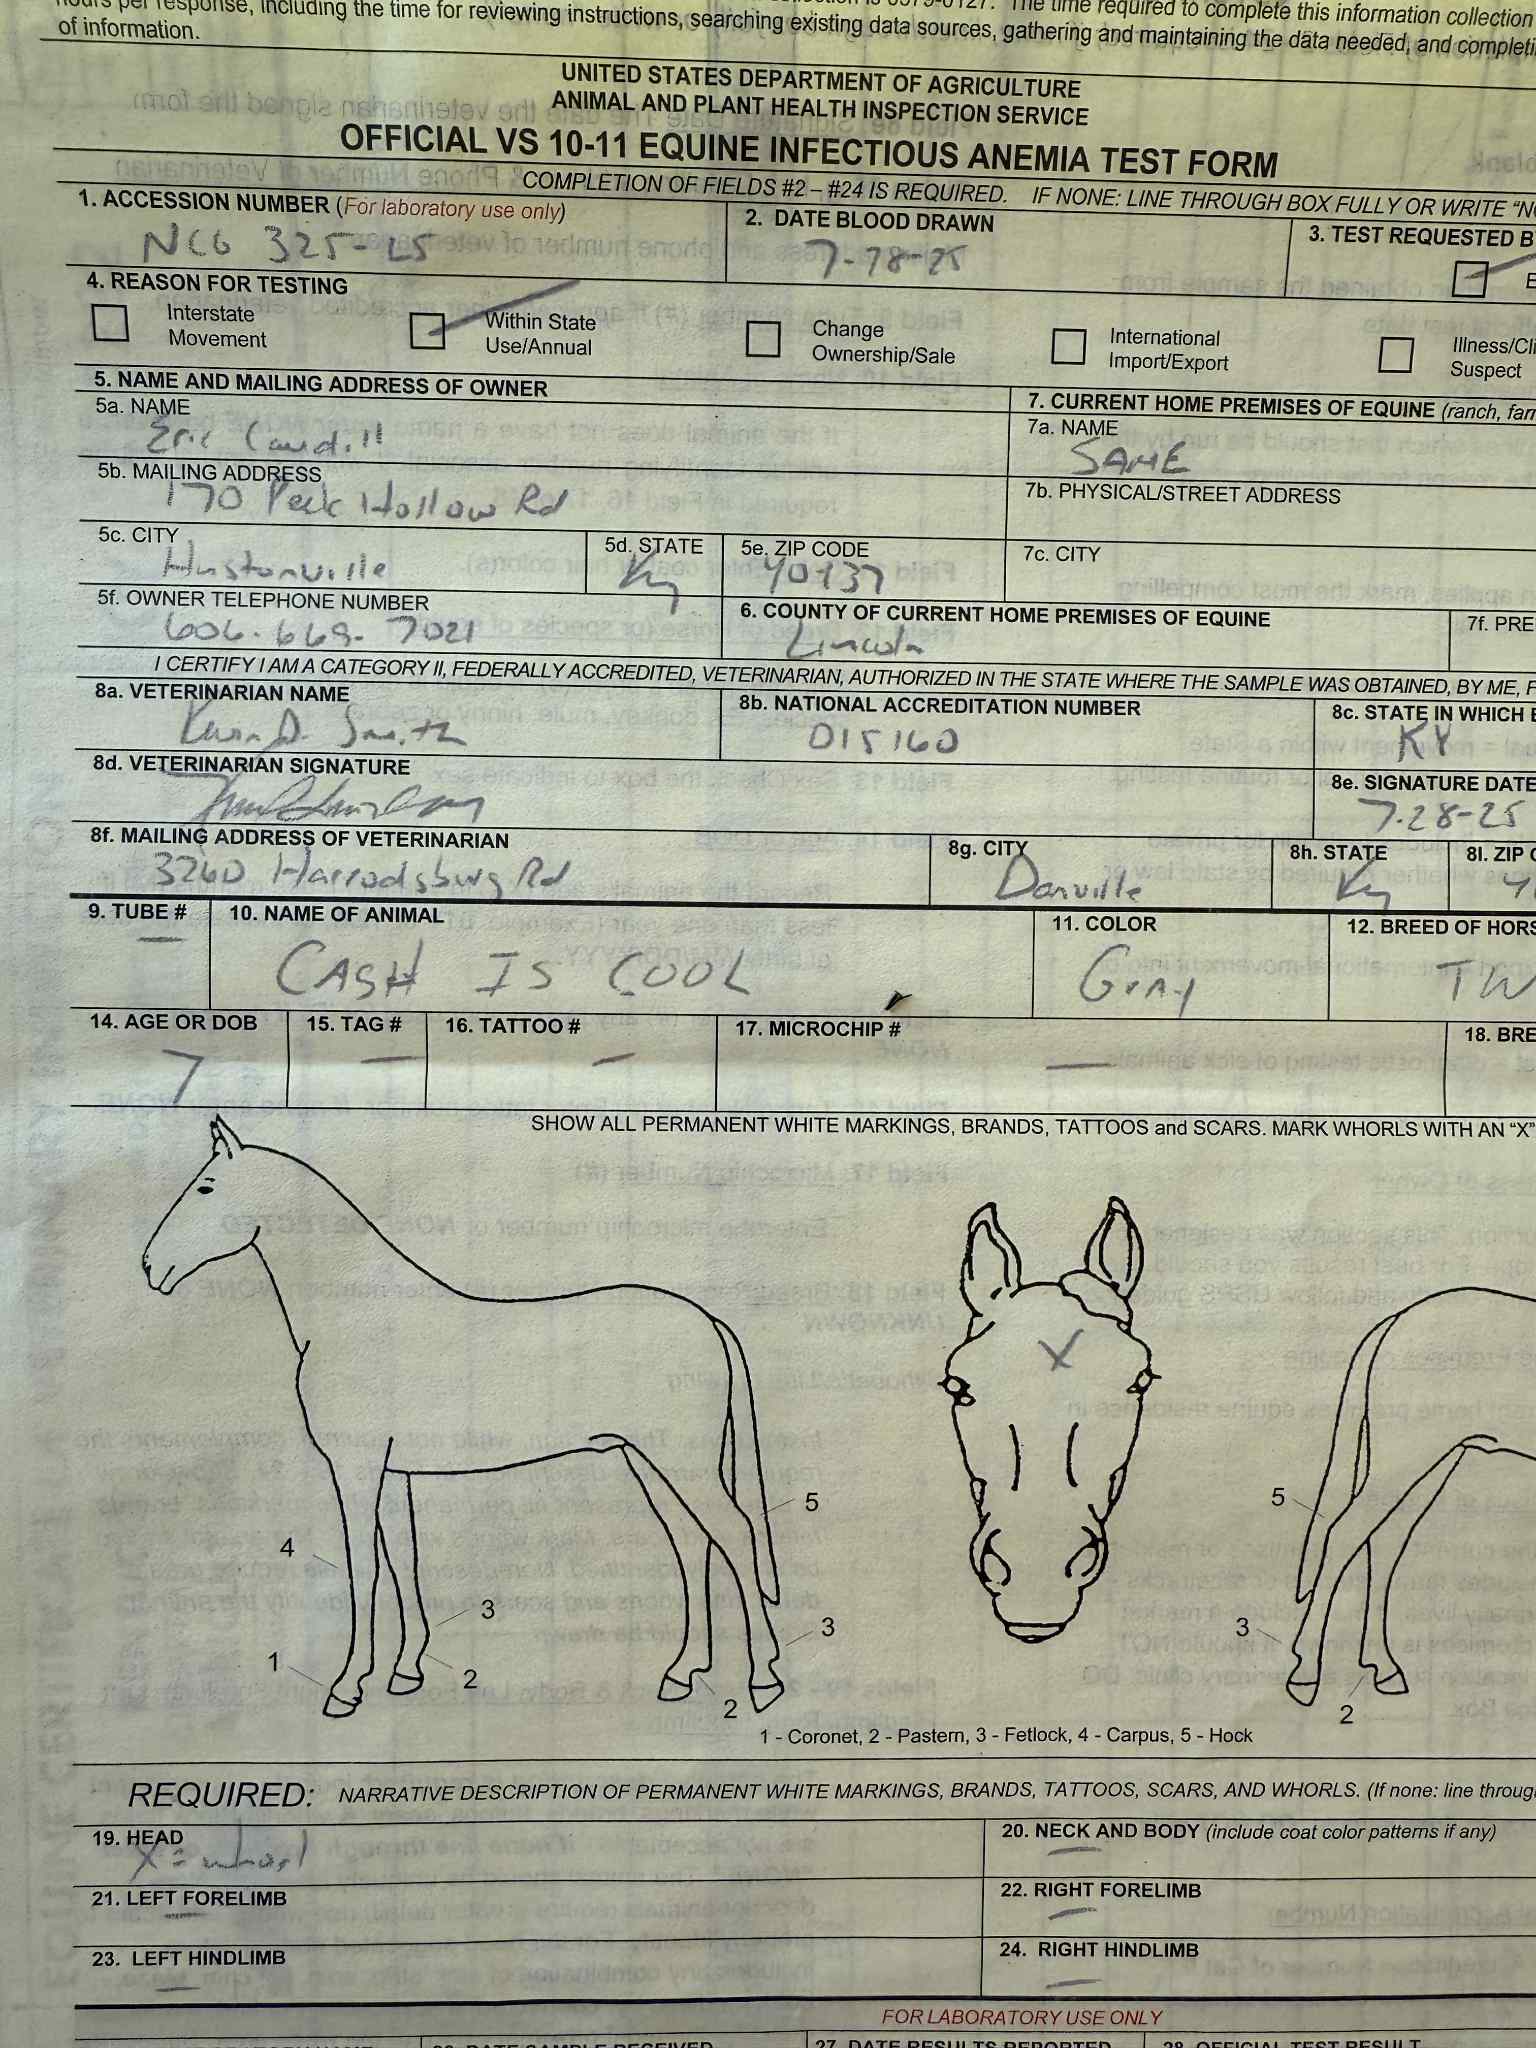 hours per response, including the time for reviewing instructions, searching existing data sources, gathering and maintaining the data needed, and
of information.
UNITED STATES DEPARTMENT OF AGRICULTURE
ANIMAL AND PLANT HEALTH INSPECTION SERVICE
OFFICIAL VS 10-11 EQUINE INFECTIOUS ANEMIA TEST FORM
COMPLETION OF FIELDS #2 – #24 IS REQUIRED. IF NONE: LINE THROUGH BOX FULLY OR WRITE
1. ACCESSION NUMBER (For laboratory use only)
2. DATE BLOOD DRAWN
3. TEST REQUESTED B
325-25
4. REASON FOR TESTING
Interstate Movement
Within State Use/Annual
Change Ownership/Sale
International Import/Export
Suspect
5. NAME AND MAILING ADDRESS OF OWNER
7. CURRENT HOME PREMISES OF EQUINE (ranch,
5a. NAME
Eric Caudill
7a. NAME
SAME
5b. MAILING ADDRESS
170 Peck Hollow Rd
7b. PHYSICAL/STREET ADDRESS
5c. CITY
Hustonville
5d. STATE
Ky
5e. ZIP CODE
7c. CITY
5f. OWNER TELEPHONE NUMBER
606-669-7021
6. COUNTY OF CURRENT HOME PREMISES OF EQUINE
Lincoln
7f. PRE
I CERTIFY I AM A CATEGORY II, FEDERALLY ACCREDITED, VETERINARIAN, AUTHORIZED IN THE STATE WHERE THE SAMPLE WAS OBTAINED, BY ME, F
8a. VETERINARIAN NAME
D. Smith
8b. NATIONAL ACCREDITATION NUMBER
015160
8c. STATE IN WHICH
KY
8d. VETERINARIAN SIGNATURE
8e. SIGNATURE DATE
7-28-25
8f. MAILING ADDRESS OF VETERINARIAN
3260 Harrodsburg Rd
8g. CITY
Danville
8h. STATE
Ky
8I. ZIP
9. TUBE #
—
10. NAME OF ANIMAL
CASH IS COOL
11. COLOR
Gray
12. BREED OF HORS
TW
14. AGE OR DOB
7
15. TAG #
—
16. TATTOO #
—
17. MICROCHIP #
—
18. BRE
SHOW ALL PERMANENT WHITE MARKINGS, BRANDS, TATTOOS and SCARS. MARK WHORLS WITH AN “X”
X
5
5
4
3
3
3
1
2
2
2
1 - Coronet, 2 - Pastern, 3 - Fetlock, 4 - Carpus, 5 - Hock
REQUIRED: NARRATIVE DESCRIPTION OF PERMANENT WHITE MARKINGS, BRANDS, TATTOOS, SCARS, AND WHORLS. (If none: line throug
19. HEAD
X = whorl
20. NECK AND BODY (include coat color patterns if any)
—
21. LEFT FORELIMB
—
22. RIGHT FORELIMB
—
23. LEFT HINDLIMB
—
24. RIGHT HINDLIMB
—
FOR LABORATORY USE ONLY
27. DATE RESULTS REPORTED
28. OFFICIAL TEST RESULT